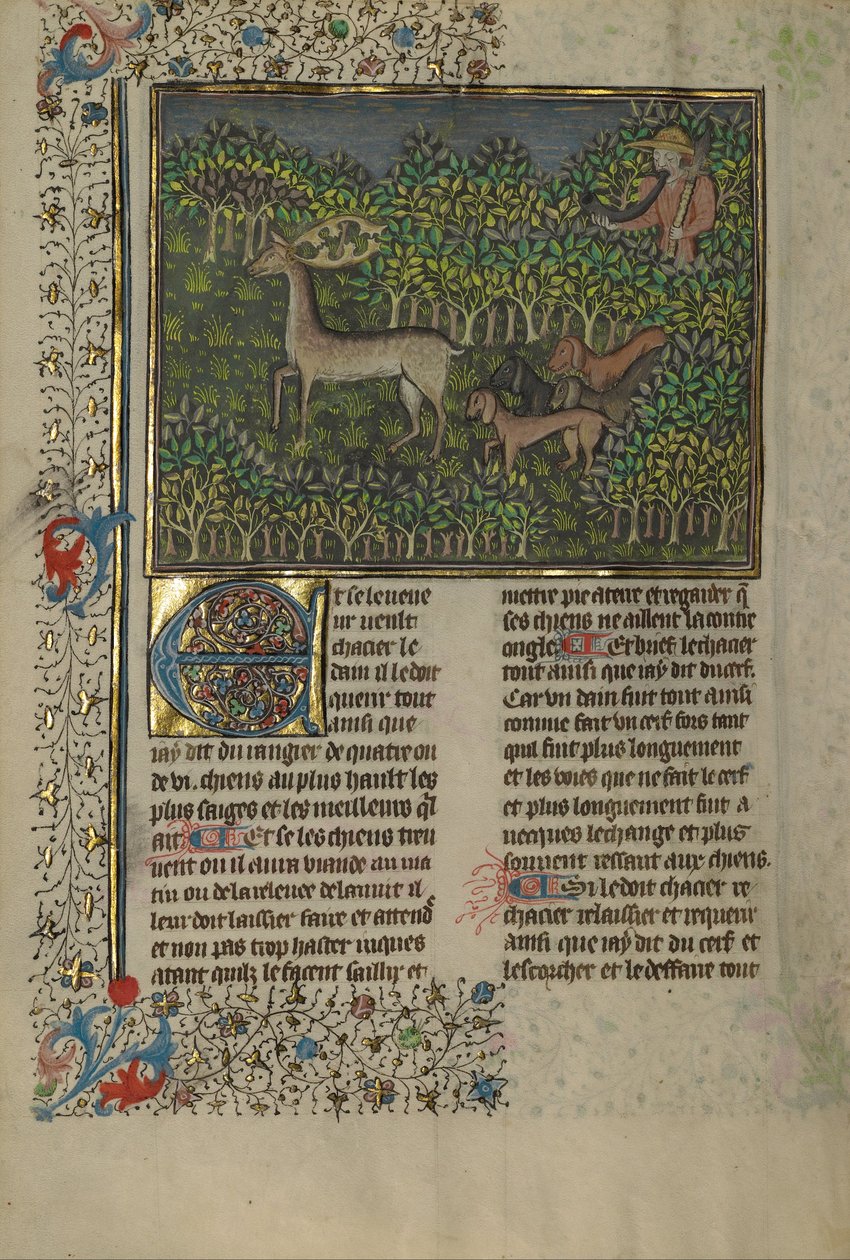 Et se le veneur
ur veult
chacier le
dain il le doit
querir tout
ainsi que
iay dit du rangier de quatre ou
de vi. chiens au plus hault les
plus saiges et les meilleurs ql
ait Et se les chiens treu
vent ou il aura viande au ma
tin ou de la relevee de la nuit il
leur doit laissier faire et attend
et non pas trop haster iuques
atant quilz le facent saillir et
mettre pie a terre et regarder q̄
ses chiens ne aillent la contre
ongle Et brief le chacier
tout ainsi que iay dit du cerf.
Car vn dain fuit tout ainsi
comme fait vn cerf fors tant
quil fuit plus longuement
et les voies que ne fait le cerf
et plus longuement fuit a
uecques le change et plus
souuent ressaut aux chiens.
Si le doit chacier re
chacier relaissier et requerir
ainsi que iay dit du cerf et
lescorcher et le deffaire tout